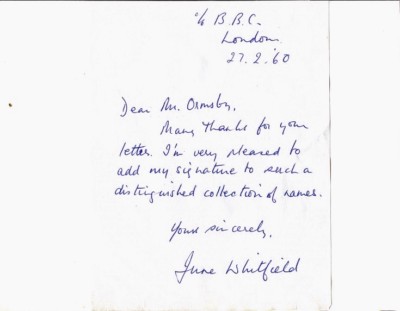 c/o B.B.C.
London.
27.2.'60
Dear Mr. Ormsby,
Many thanks for your
letter. I'm very pleased to
add my signature to such a
distinguished collection of names.
Yours sincerely,
June Whitfield